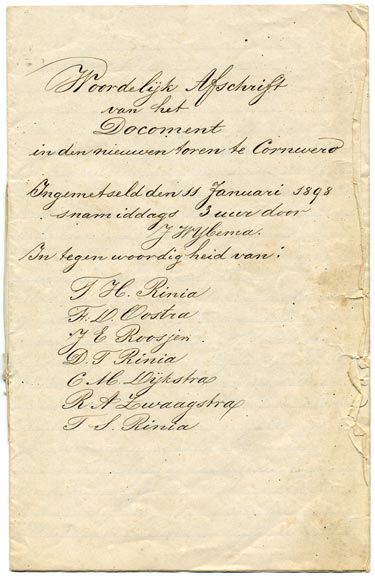 Woordelijk Afschrift
van het
Docoment
in den nieuwen toren te Cornwerd
Ingemetseld den 11 Januari 1898
snamiddags 3 uur door
J Wybema.
In tegenwoordigheid van:
T H. Rinia
F. D. Oostra
J E Roosjen
D. T Rinia
C M. Dijkstra
R A Zwaagstra
T S. Rinia